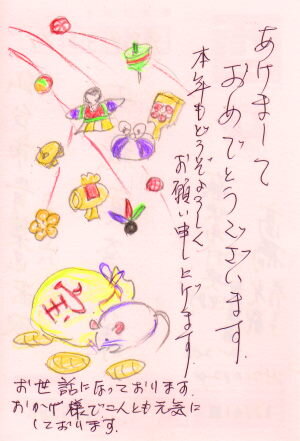 あけまして
おめでとうございます。
本年もどうぞよろしく
お願い申し上げます
宝
お世話になっております。
おかげ様で二人とも元気に
しております。